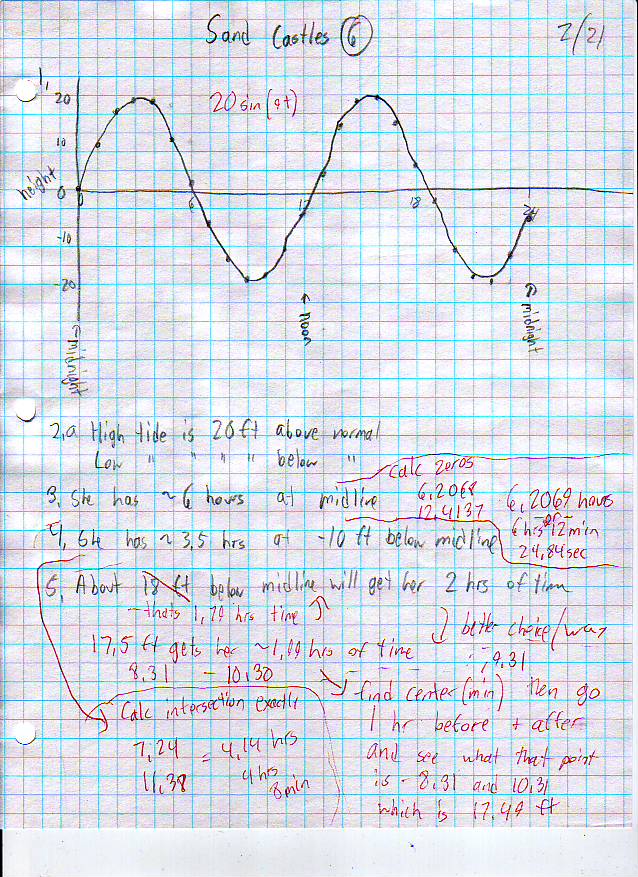 Sand Castles 6
2/21
1,
20
20 sin(9t)
10
height
0
0
6
12
18
24
-10
-20
→ midnight
← noon
← midnight
2,a High tide is 20 ft above normal
Low " " " " below "
calc zeros
3. She has ~6 hours at midline
6,2068
12,4137
6,2069 hours
-or-
6 hrs 12 min
24,84 sec
4. She has ~3.5 hrs at -10 ft below midline
5. About 18 ft below midline will get her 2 hrs of time
-thats 1,79 hrs time
17,5 ft gets her ~1,99 hrs of time
better choice/way
9,31
8,31 - 10,30
find center (min) then go
1 hr before + after
and see what that point
is - 8,31 and 10,31
which is 17,49 ft
Calc intersection exactly
7,24
11,38
= 4,14 hrs
4 hrs
8 min